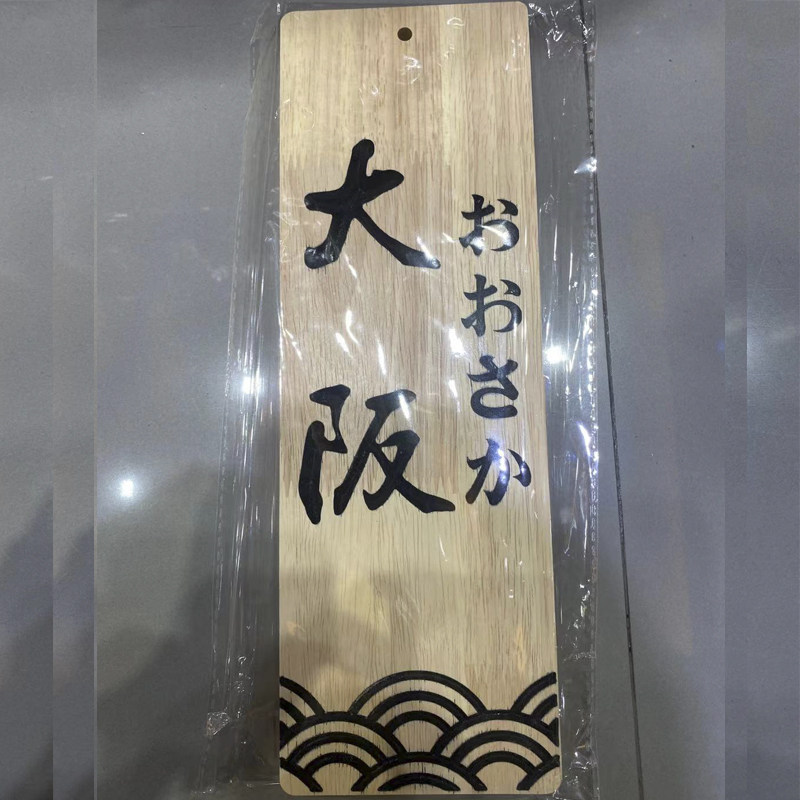 おおさか
大阪